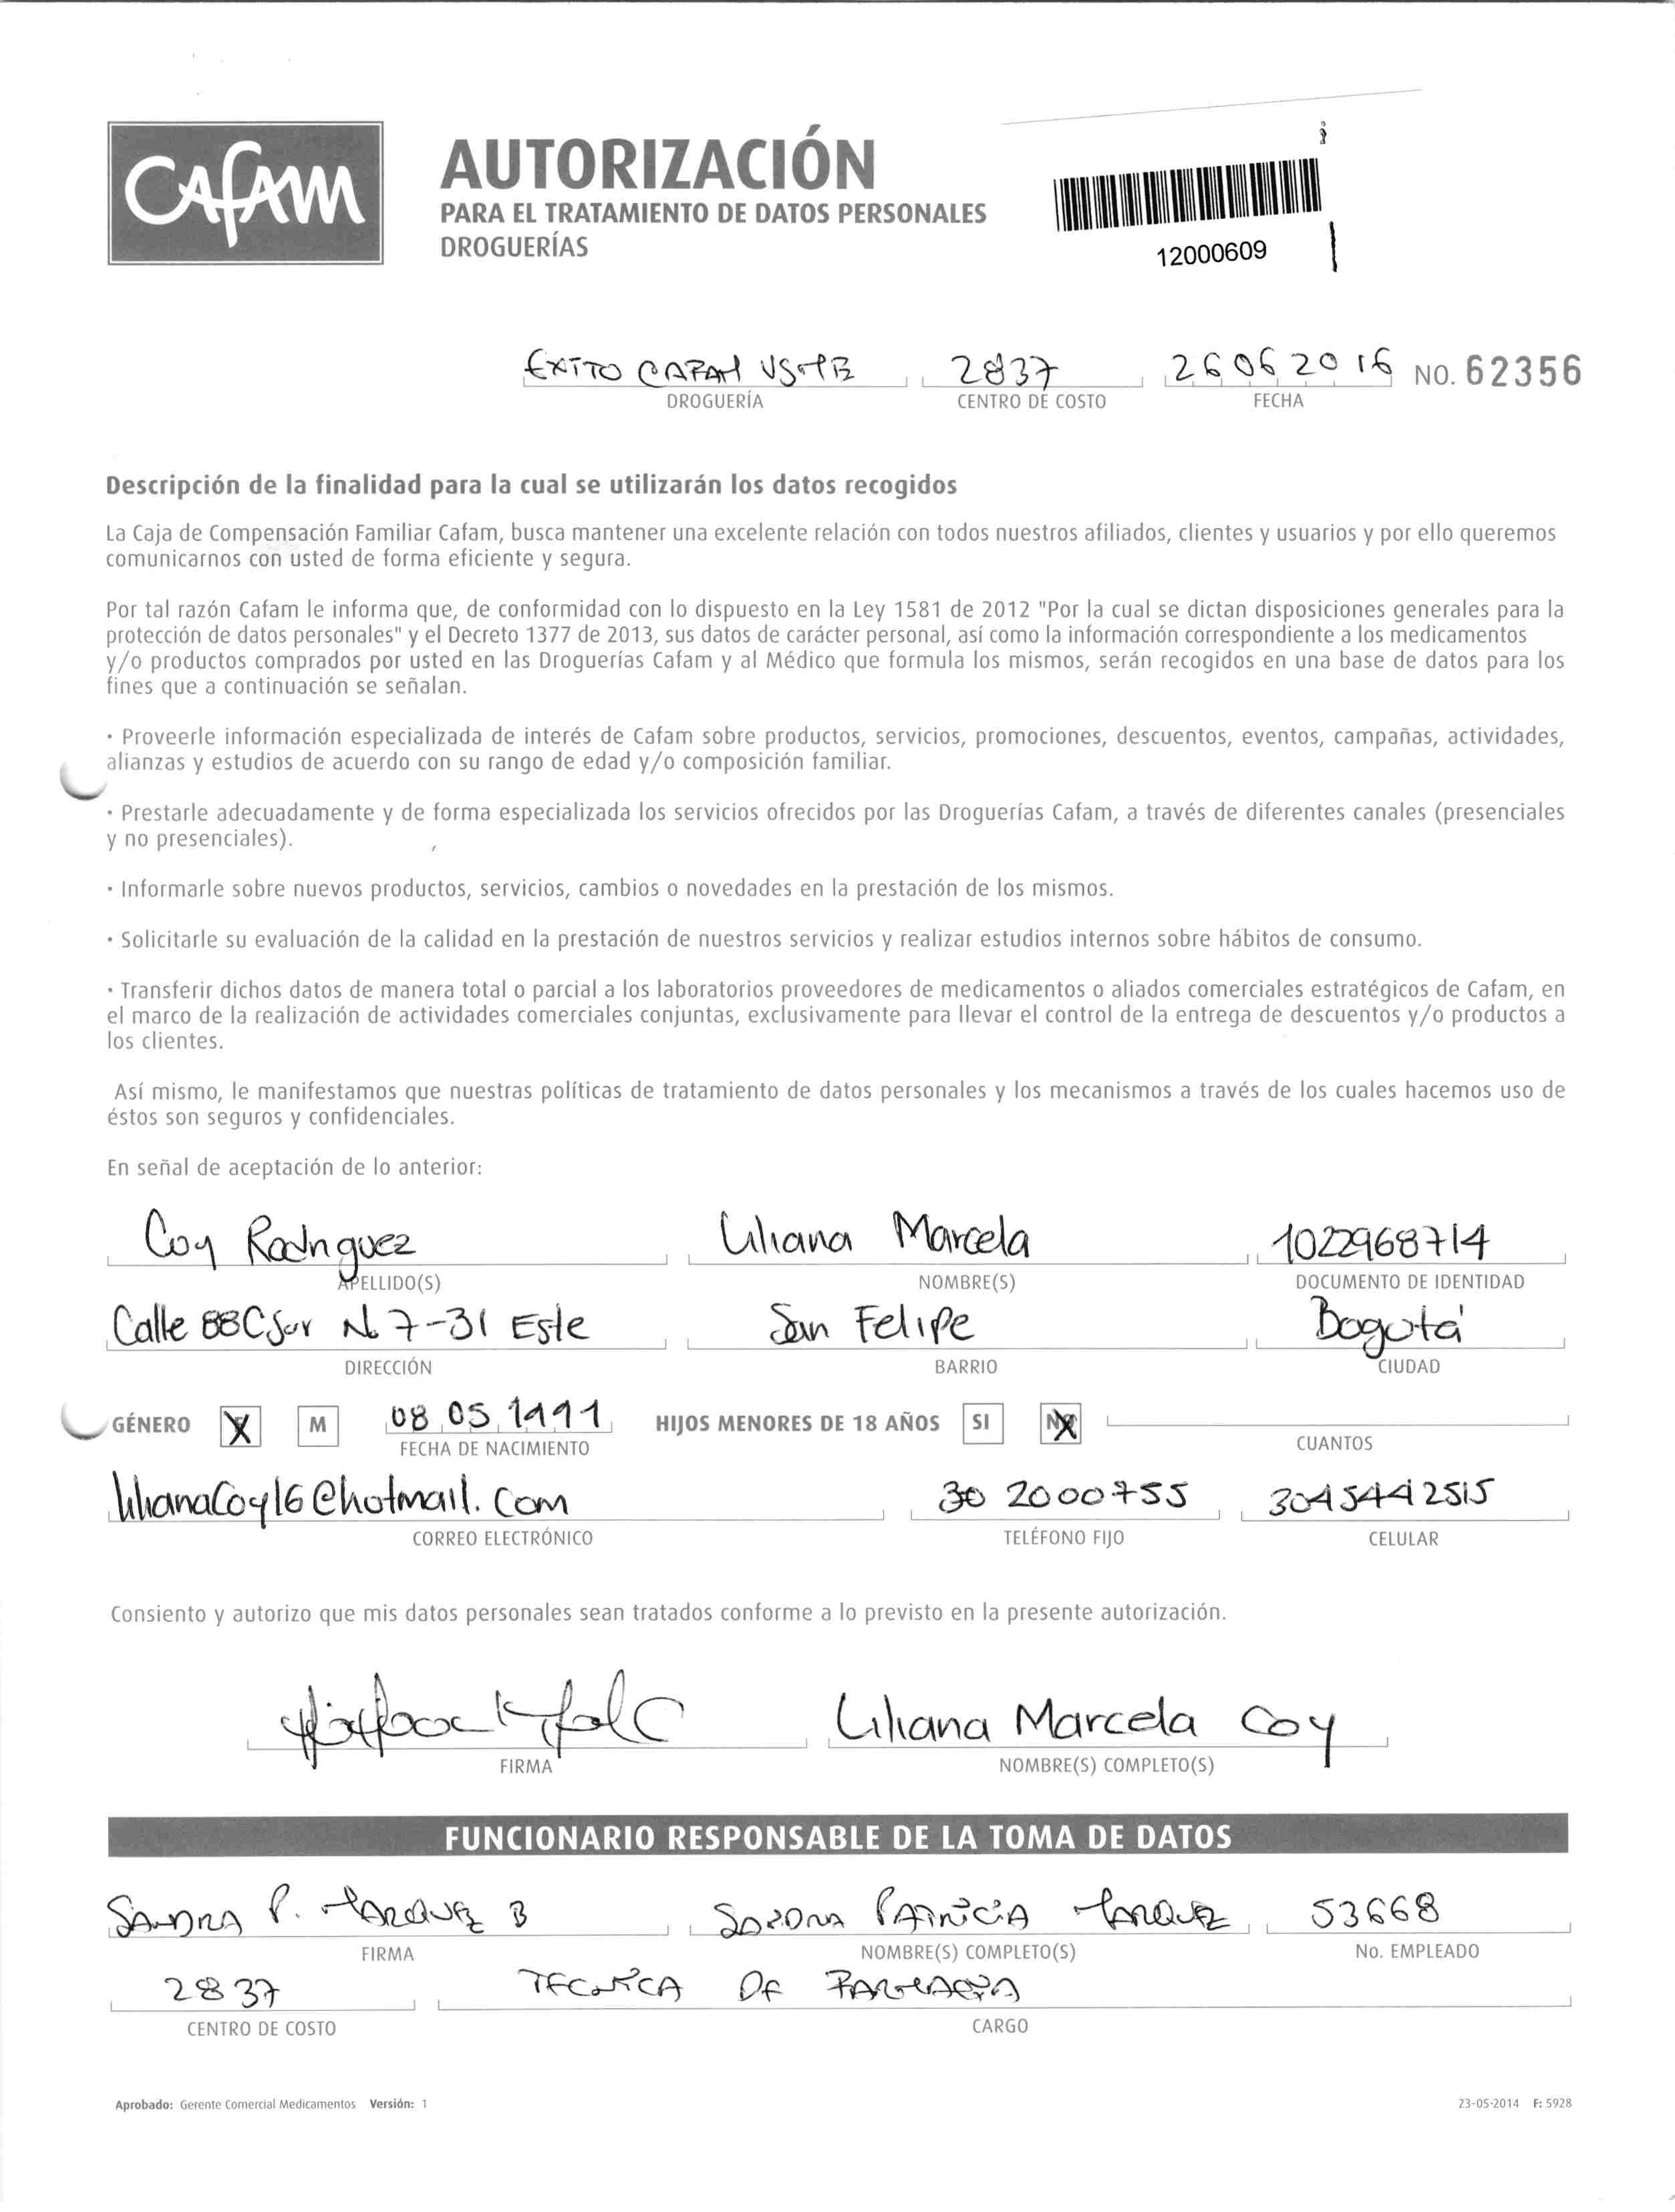 CAFAM
AUTORIZACIÓN
PARA EL TRATAMIENTO DE DATOS PERSONALES
DROGUERÍAS
12000609
EXITO CAFAM 2837 26 06 2016 NO. 62356
DROGUERÍA CENTRO DE COSTO FECHA
Descripción de la finalidad para la cual se utilizarán los datos recogidos
La Caja de Compensación Familiar Cafam, busca mantener una excelente relación con todos nuestros afiliados, clientes y usuarios y por ello queremos
comunicarnos con usted de forma eficiente y segura.
Por tal razón Cafam le informa que, de conformidad con lo dispuesto en la Ley 1581 de 2012 "Por la cual se dictan disposiciones generales para la
protección de datos personales" y el Decreto 1377 de 2013, sus datos de carácter personal, así como la información correspondiente a los medicamentos
y/o productos comprados por usted en las Droguerías Cafam y al Médico que formula los mismos, serán recogidos en una base de datos para los
fines que a continuación se señalan.
· Proveerle información especializada de interés de Cafam sobre productos, servicios, promociones, descuentos, eventos, campañas, actividades,
alianzas y estudios de acuerdo con su rango de edad y/o composición familiar.
· Prestarle adecuadamente y de forma especializada los servicios ofrecidos por las Droguerías Cafam, a través de diferentes canales (presenciales
y no presenciales).
· Informarle sobre nuevos productos, servicios, cambios o novedades en la prestación de los mismos.
· Solicitarle su evaluación de la calidad en la prestación de nuestros servicios y realizar estudios internos sobre hábitos de consumo.
· Transferir dichos datos de manera total o parcial a los laboratorios proveedores de medicamentos o aliados comerciales estratégicos de Cafam, en
el marco de la realización de actividades comerciales conjuntas, exclusivamente para llevar el control de la entrega de descuentos y/o productos a
los clientes.
Así mismo, le manifestamos que nuestras políticas de tratamiento de datos personales y los mecanismos a través de los cuales hacemos uso de
éstos son seguros y confidenciales.
En señal de aceptación de lo anterior:
Coy Rodriguez Liliana Marcela 1022968714
APELLIDO(S) NOMBRE(S) DOCUMENTO DE IDENTIDAD
Calle 88C Sur No 7-31 Este San Felipe Bogotá
DIRECCIÓN BARRIO CIUDAD
GÉNERO X M 08 05 1991 HIJOS MENORES DE 18 AÑOS SI NO X
FECHA DE NACIMIENTO CUANTOS
lilianaCoy16@hotmail.com 30 2000755 3045442515
CORREO ELECTRÓNICO TELÉFONO FIJO CELULAR
Consiento y autorizo que mis datos personales sean tratados conforme a lo previsto en la presente autorización.
Liliana Marcela Coy
FIRMA NOMBRE(S) COMPLETO(S)
FUNCIONARIO RESPONSABLE DE LA TOMA DE DATOS
SANDRA P. MARQUEZ B SANDRA PATRICIA MARQUEZ 53668
FIRMA NOMBRE(S) COMPLETO(S) No. EMPLEADO
2837 TECNICA DE FARMACIA
CENTRO DE COSTO CARGO
Aprobado: Gerente Comercial Medicamentos Versión: 1 23-05-2014 F: 5928